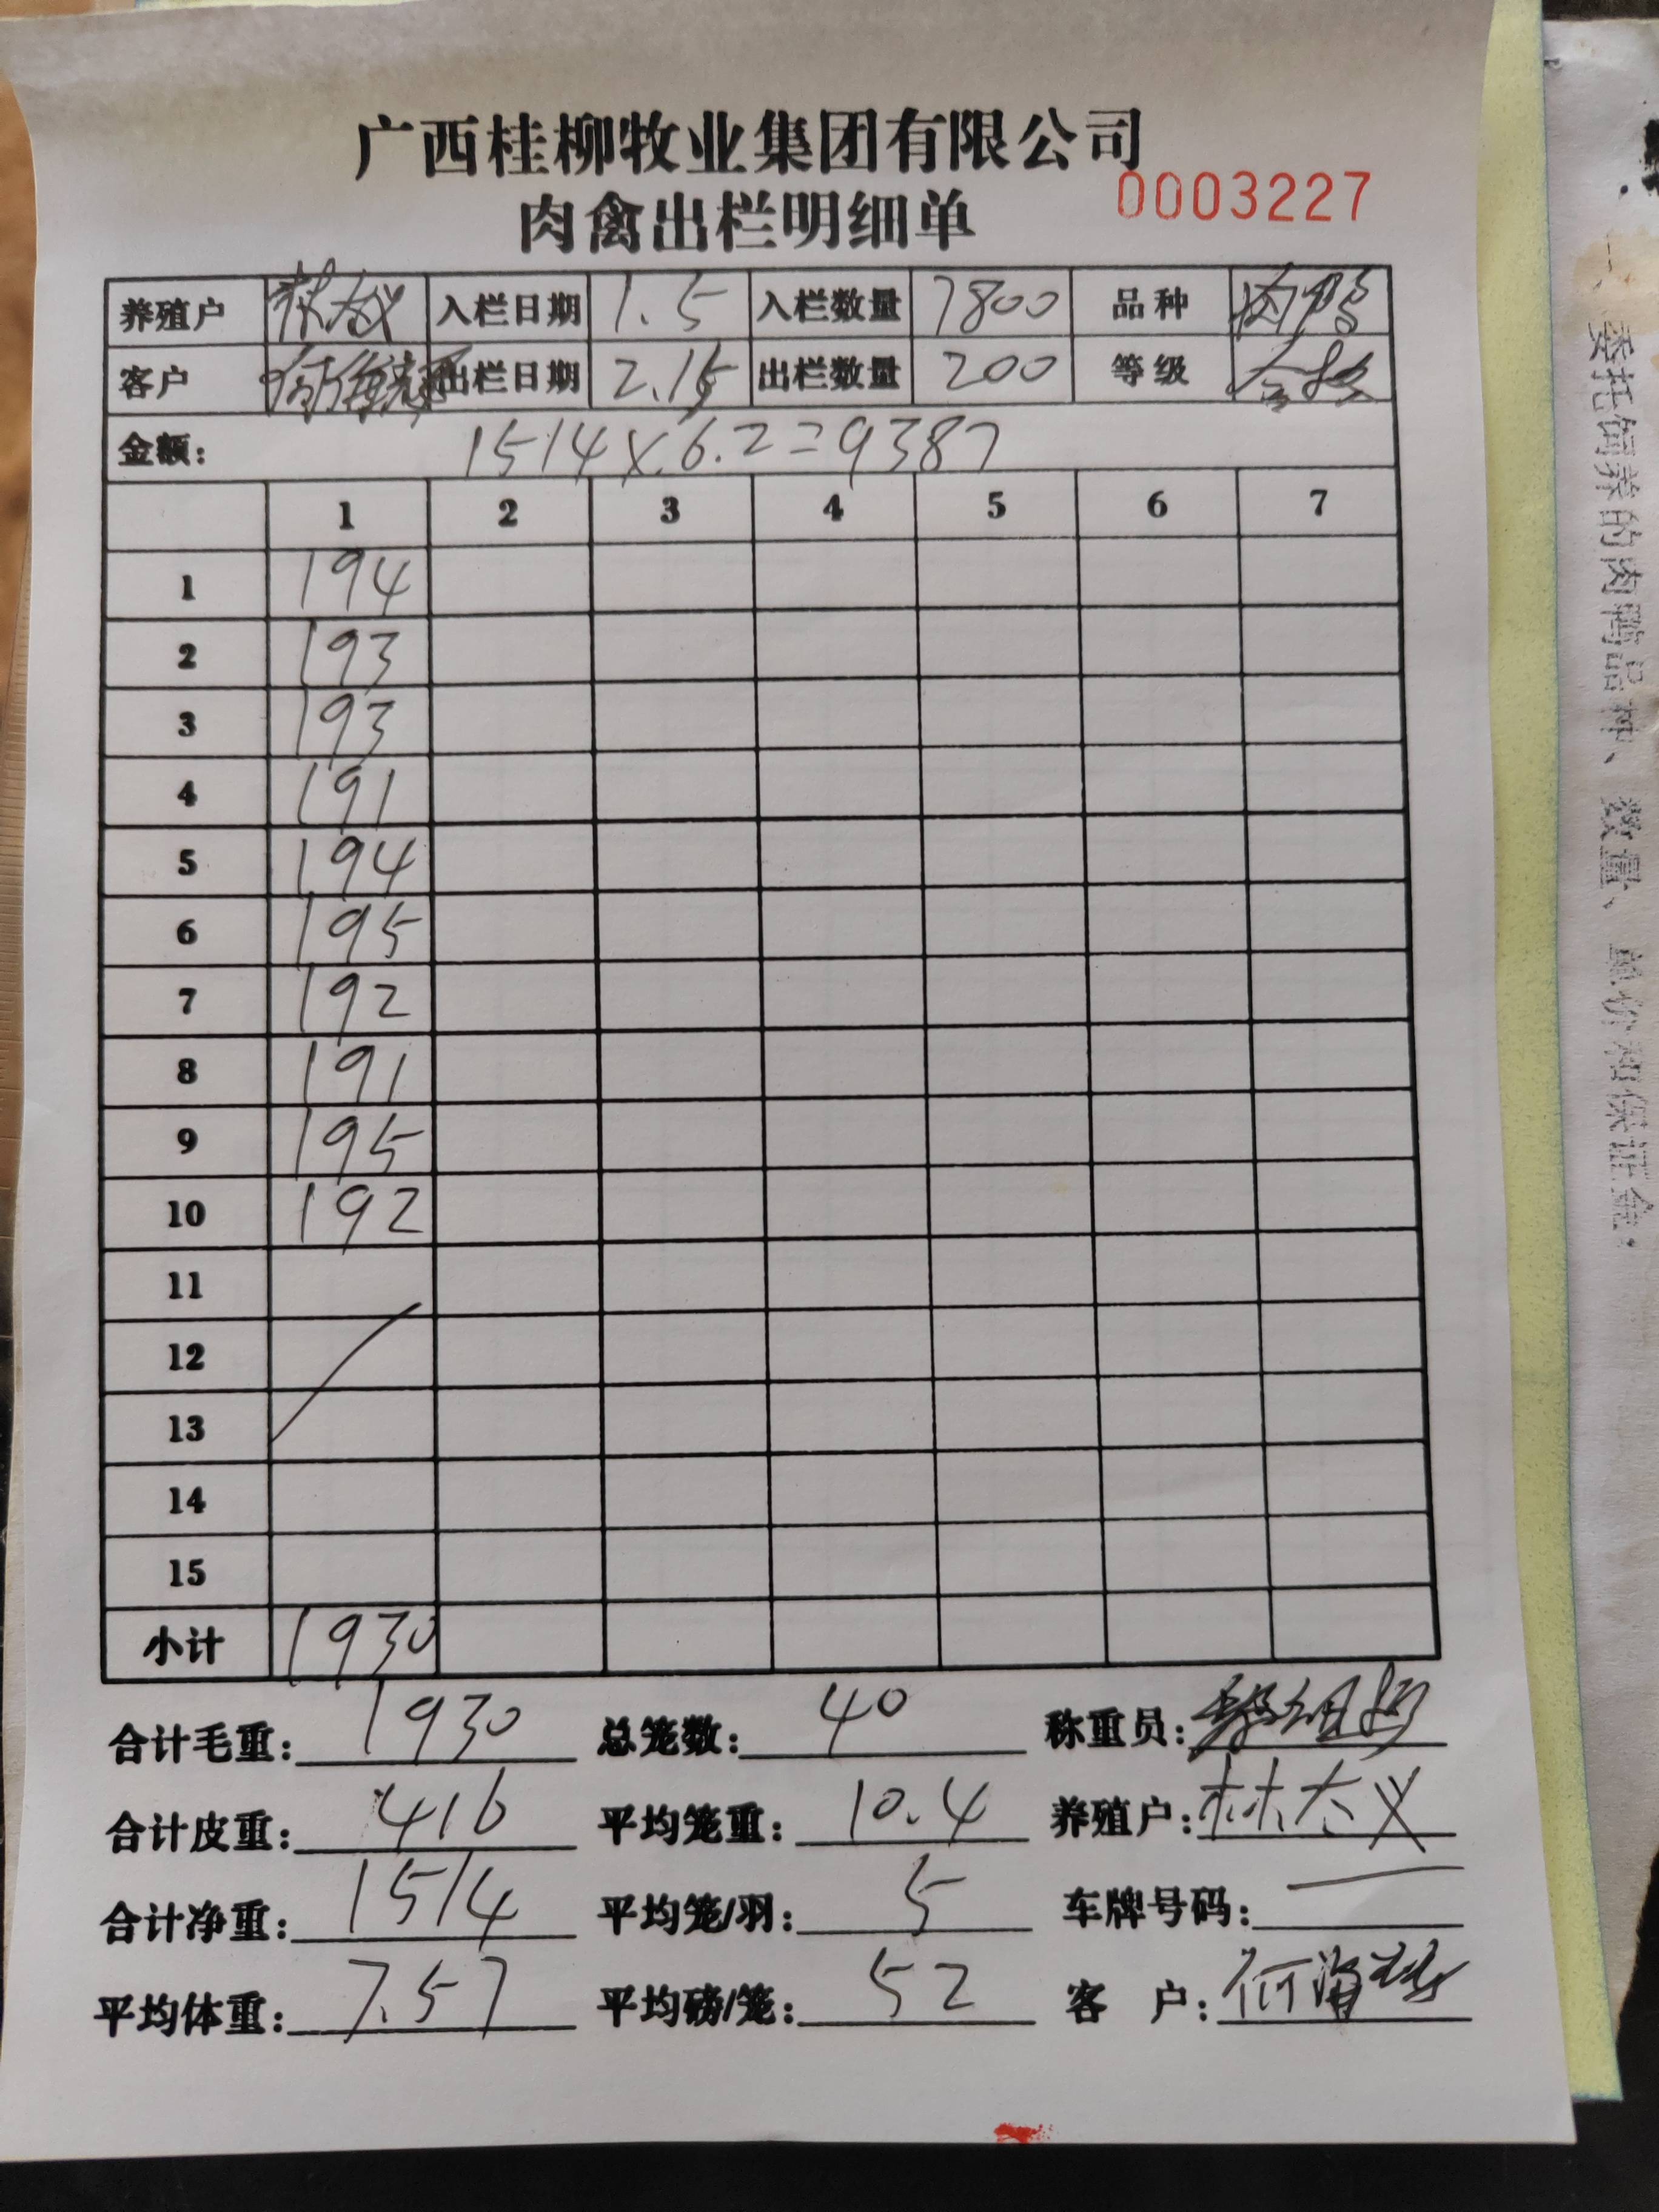 广西桂柳牧业集团有限公司
肉禽出栏明细单
0003227
养殖户 林大义 入栏日期 1.5 入栏数量 7800 品种 肉鸭
客户 出栏日期 2.15 出栏数量 200 等级 合格
金额: 1514×6.2=9387
1 2 3 4 5 6 7
1 194
2 193
3 193
4 191
5 194
6 195
7 192
8 191
9 195
10 192
11
12
13
14
15
小计 1930
合计毛重: 1930 总笼数: 40 称重员:
合计皮重: 416 平均笼重: 10.4 养殖户: 林大义
合计净重: 1514 平均笼/羽: 5 车牌号码: —
平均体重: 7.57 平均磅/笼: 52 客 户:
一、委托饲养的肉鸭品种、数量、单价和保证金。